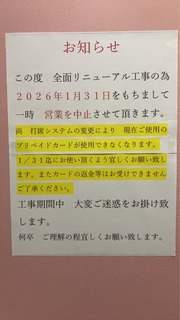 お知らせ
この度　全面リニューアル工事の為
２０２６年１月３１日をもちまして
一時　営業を中止させて頂きます。
尚　打席システムの変更により　現在ご使用の
プリペイドカードが使用できなくなります。
１／３１迄にお使い頂くよう宜しくお願い致しま
す。またカードの返金等はお受けできません
ご了承ください。
工事期間中　大変ご迷惑をお掛け致
します。
何卒　ご理解の程宜しくお願い致します。